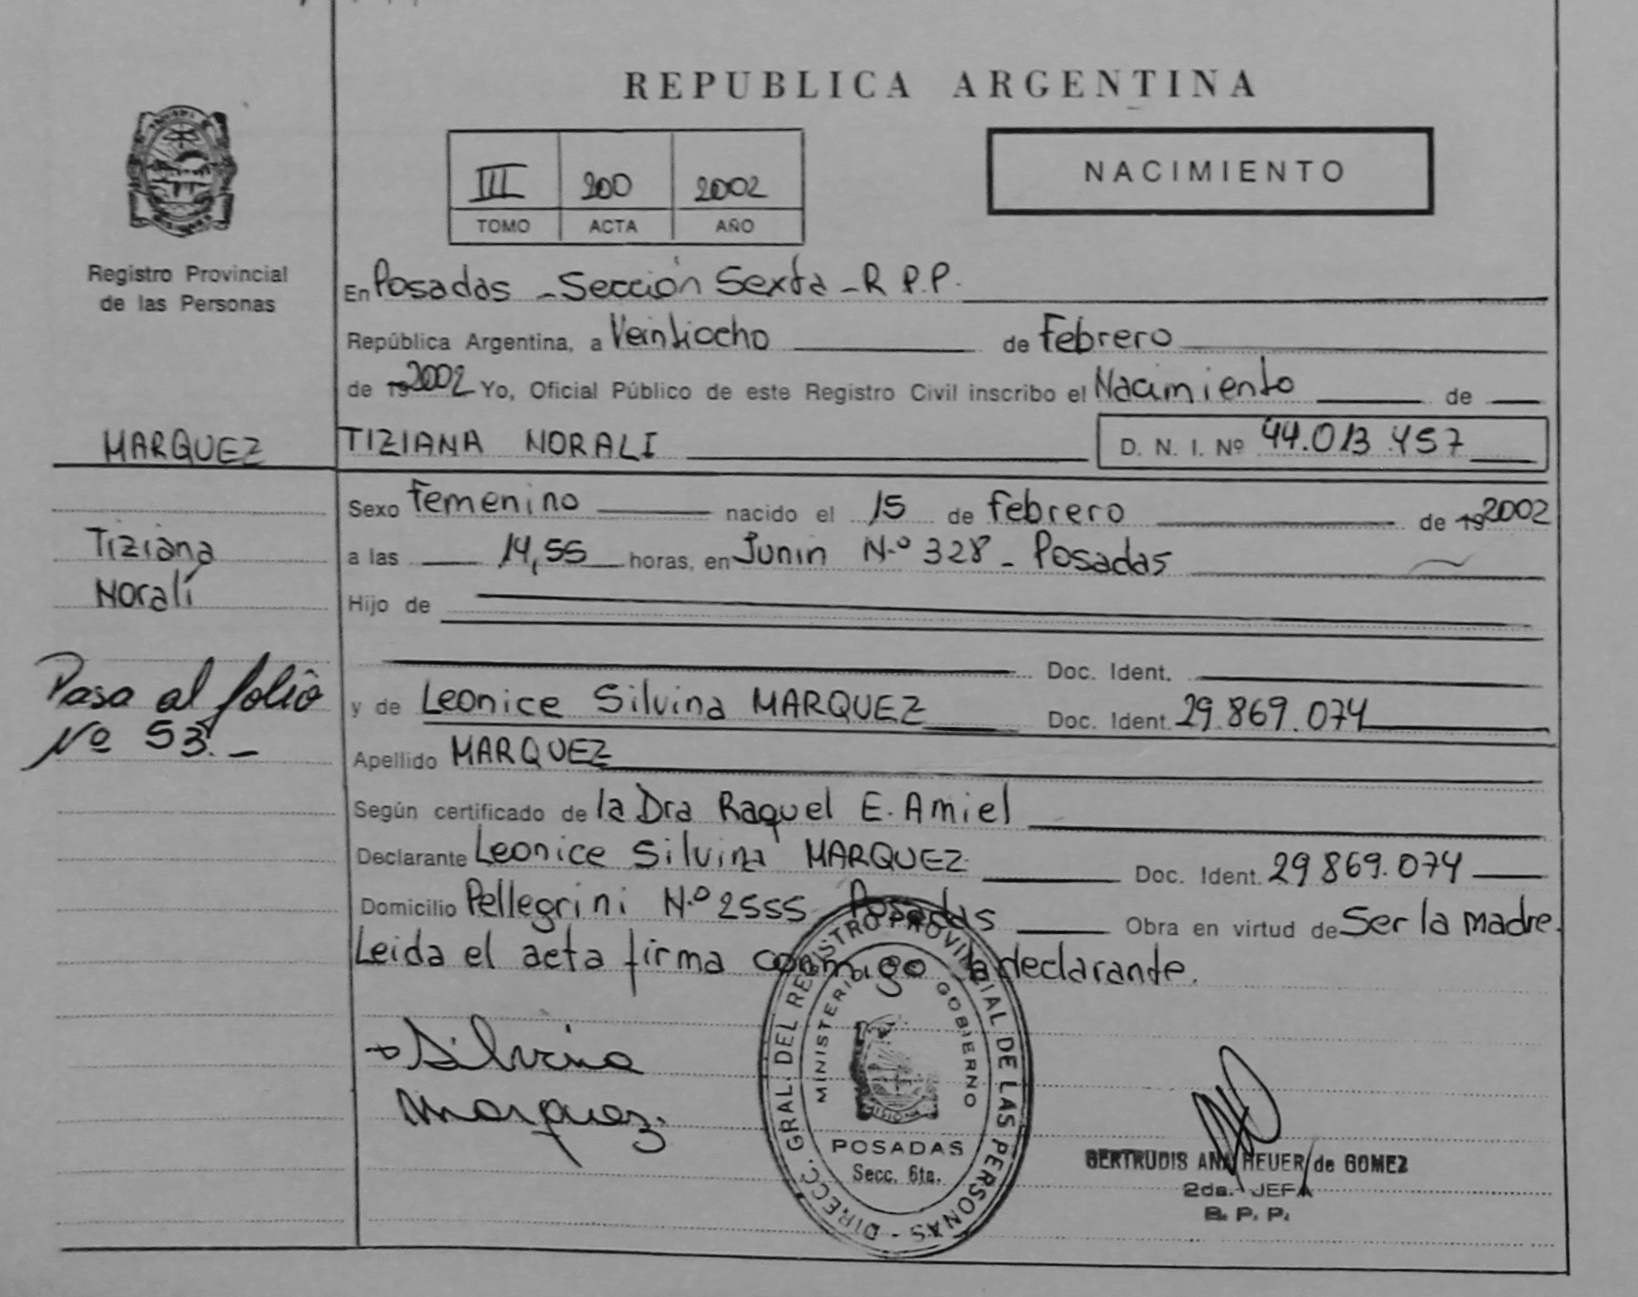 REPUBLICA ARGENTINA
III 200 2002
TOMO ACTA AÑO
NACIMIENTO
Registro Provincial
de las Personas
En Posadas - Sección Sexta - R P.P.
República Argentina, a Veintiocho de Febrero
de 19 2002 Yo, Oficial Público de este Registro Civil inscribo el Nacimiento de
MARQUEZ TIZIANA NORALI D. N. I. Nº 44.013.457
Sexo Femenino nacido el 15 de Febrero de 19 2002
Tiziana
Noralí
a las 14,55 horas, en Junin N.º 328 - Posadas
Hijo de
Doc. Ident.
Pasa al folio
Nº 53.-
y de Leonice Silvina MARQUEZ Doc. Ident. 29.869.074
Apellido MARQUEZ
Según certificado de la Dra Raquel E. Amiel
Declarante Leonice Silvina MARQUEZ Doc. Ident. 29869.074
Domicilio Pellegrini N.º 2555 Posadas Obra en virtud de Ser la madre.
Leida el acta firma conmigo la declarante.
Silvina
Marquez.
DIRECC. GRAL. DEL REGISTRO PROVINCIAL DE LAS PERSONAS -
MINISTERIO GOBIERNO
MISIONES
POSADAS
Secc. 6ta.
GERTRUDIS ANA HEUER de GOMEZ
2da. JEFA
R. P. P.